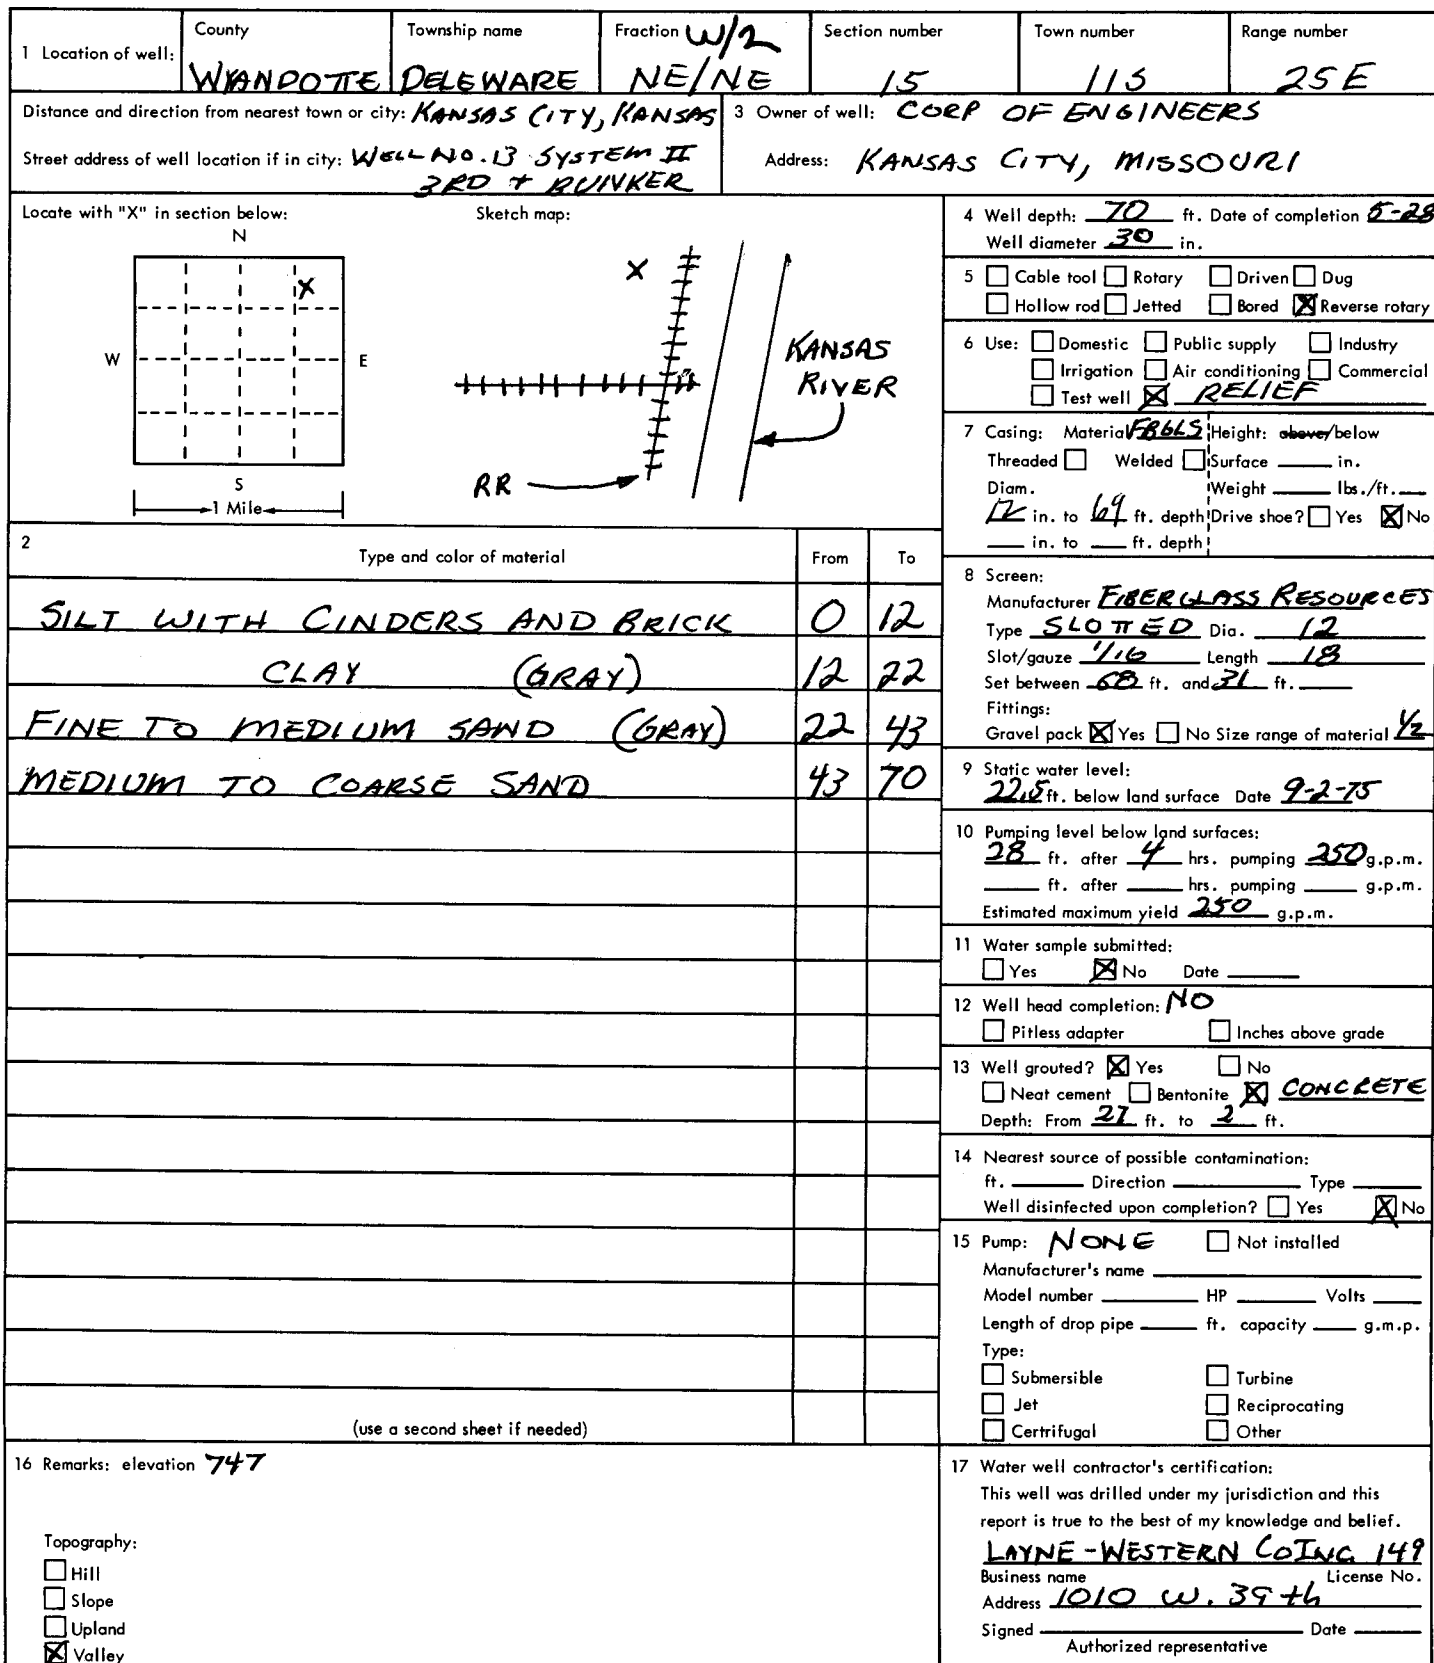 1 Location of well:
County
WYANDOTTE
Township name
DELEWARE
Fraction W/2
NE/NE
Section number
15
Town number
11S
Range number
25E
Distance and direction from nearest town or city: KANSAS CITY, KANSAS
Street address of well location if in city: WELL NO. 13 SYSTEM II
3RD + BUNKER
3 Owner of well: CORP OF ENGINEERS
Address: KANSAS CITY, MISSOURI
Locate with "X" in section below:
N
X
W E
S
1 Mile
Sketch map:
X
KANSAS
RIVER
RR
2
Type and color of material From To
SILT WITH CINDERS AND BRICK 0 12
CLAY (GRAY) 12 22
FINE TO MEDIUM SAND (GRAY) 22 43
MEDIUM TO COARSE SAND 43 70
(use a second sheet if needed)
4 Well depth: 70 ft. Date of completion 5-28
Well diameter 30 in.
5 Cable tool Rotary Driven Dug
Hollow rod Jetted Bored X Reverse rotary
6 Use: Domestic Public supply Industry
Irrigation Air conditioning Commercial
Test well X RELIEF
7 Casing: Material FBGLS Height: above/below
Threaded Welded Surface in.
Diam. Weight lbs./ft.
12 in. to 69 ft. depth Drive shoe? Yes X No
in. to ft. depth
8 Screen:
Manufacturer FIBERGLASS RESOURCES
Type SLOTTED Dia. 12
Slot/gauze 1/16 Length 18
Set between ft. and 31 ft.
Fittings:
Gravel pack X Yes No Size range of material 1/2
9 Static water level:
22.5 ft. below land surface Date 9-2-75
10 Pumping level below land surfaces:
28 ft. after 4 hrs. pumping 250 g.p.m.
ft. after hrs. pumping g.p.m.
Estimated maximum yield 250 g.p.m.
11 Water sample submitted:
Yes X No Date
12 Well head completion: NO
Pitless adapter Inches above grade
13 Well grouted? X Yes No
Neat cement Bentonite X CONCRETE
Depth: From 27 ft. to 2 ft.
14 Nearest source of possible contamination:
ft. Direction Type
Well disinfected upon completion? Yes X No
15 Pump: NONE Not installed
Manufacturer's name
Model number HP Volts
Length of drop pipe ft. capacity g.m.p.
Type:
Submersible Turbine
Jet Reciprocating
Certrifugal Other
16 Remarks: elevation 747
Topography:
Hill
Slope
Upland
X Valley
17 Water well contractor's certification:
This well was drilled under my jurisdiction and this
report is true to the best of my knowledge and belief.
LAYNE-WESTERN CO INC 149
Business name License No.
Address 1010 W. 39th
Signed Date
Authorized representative